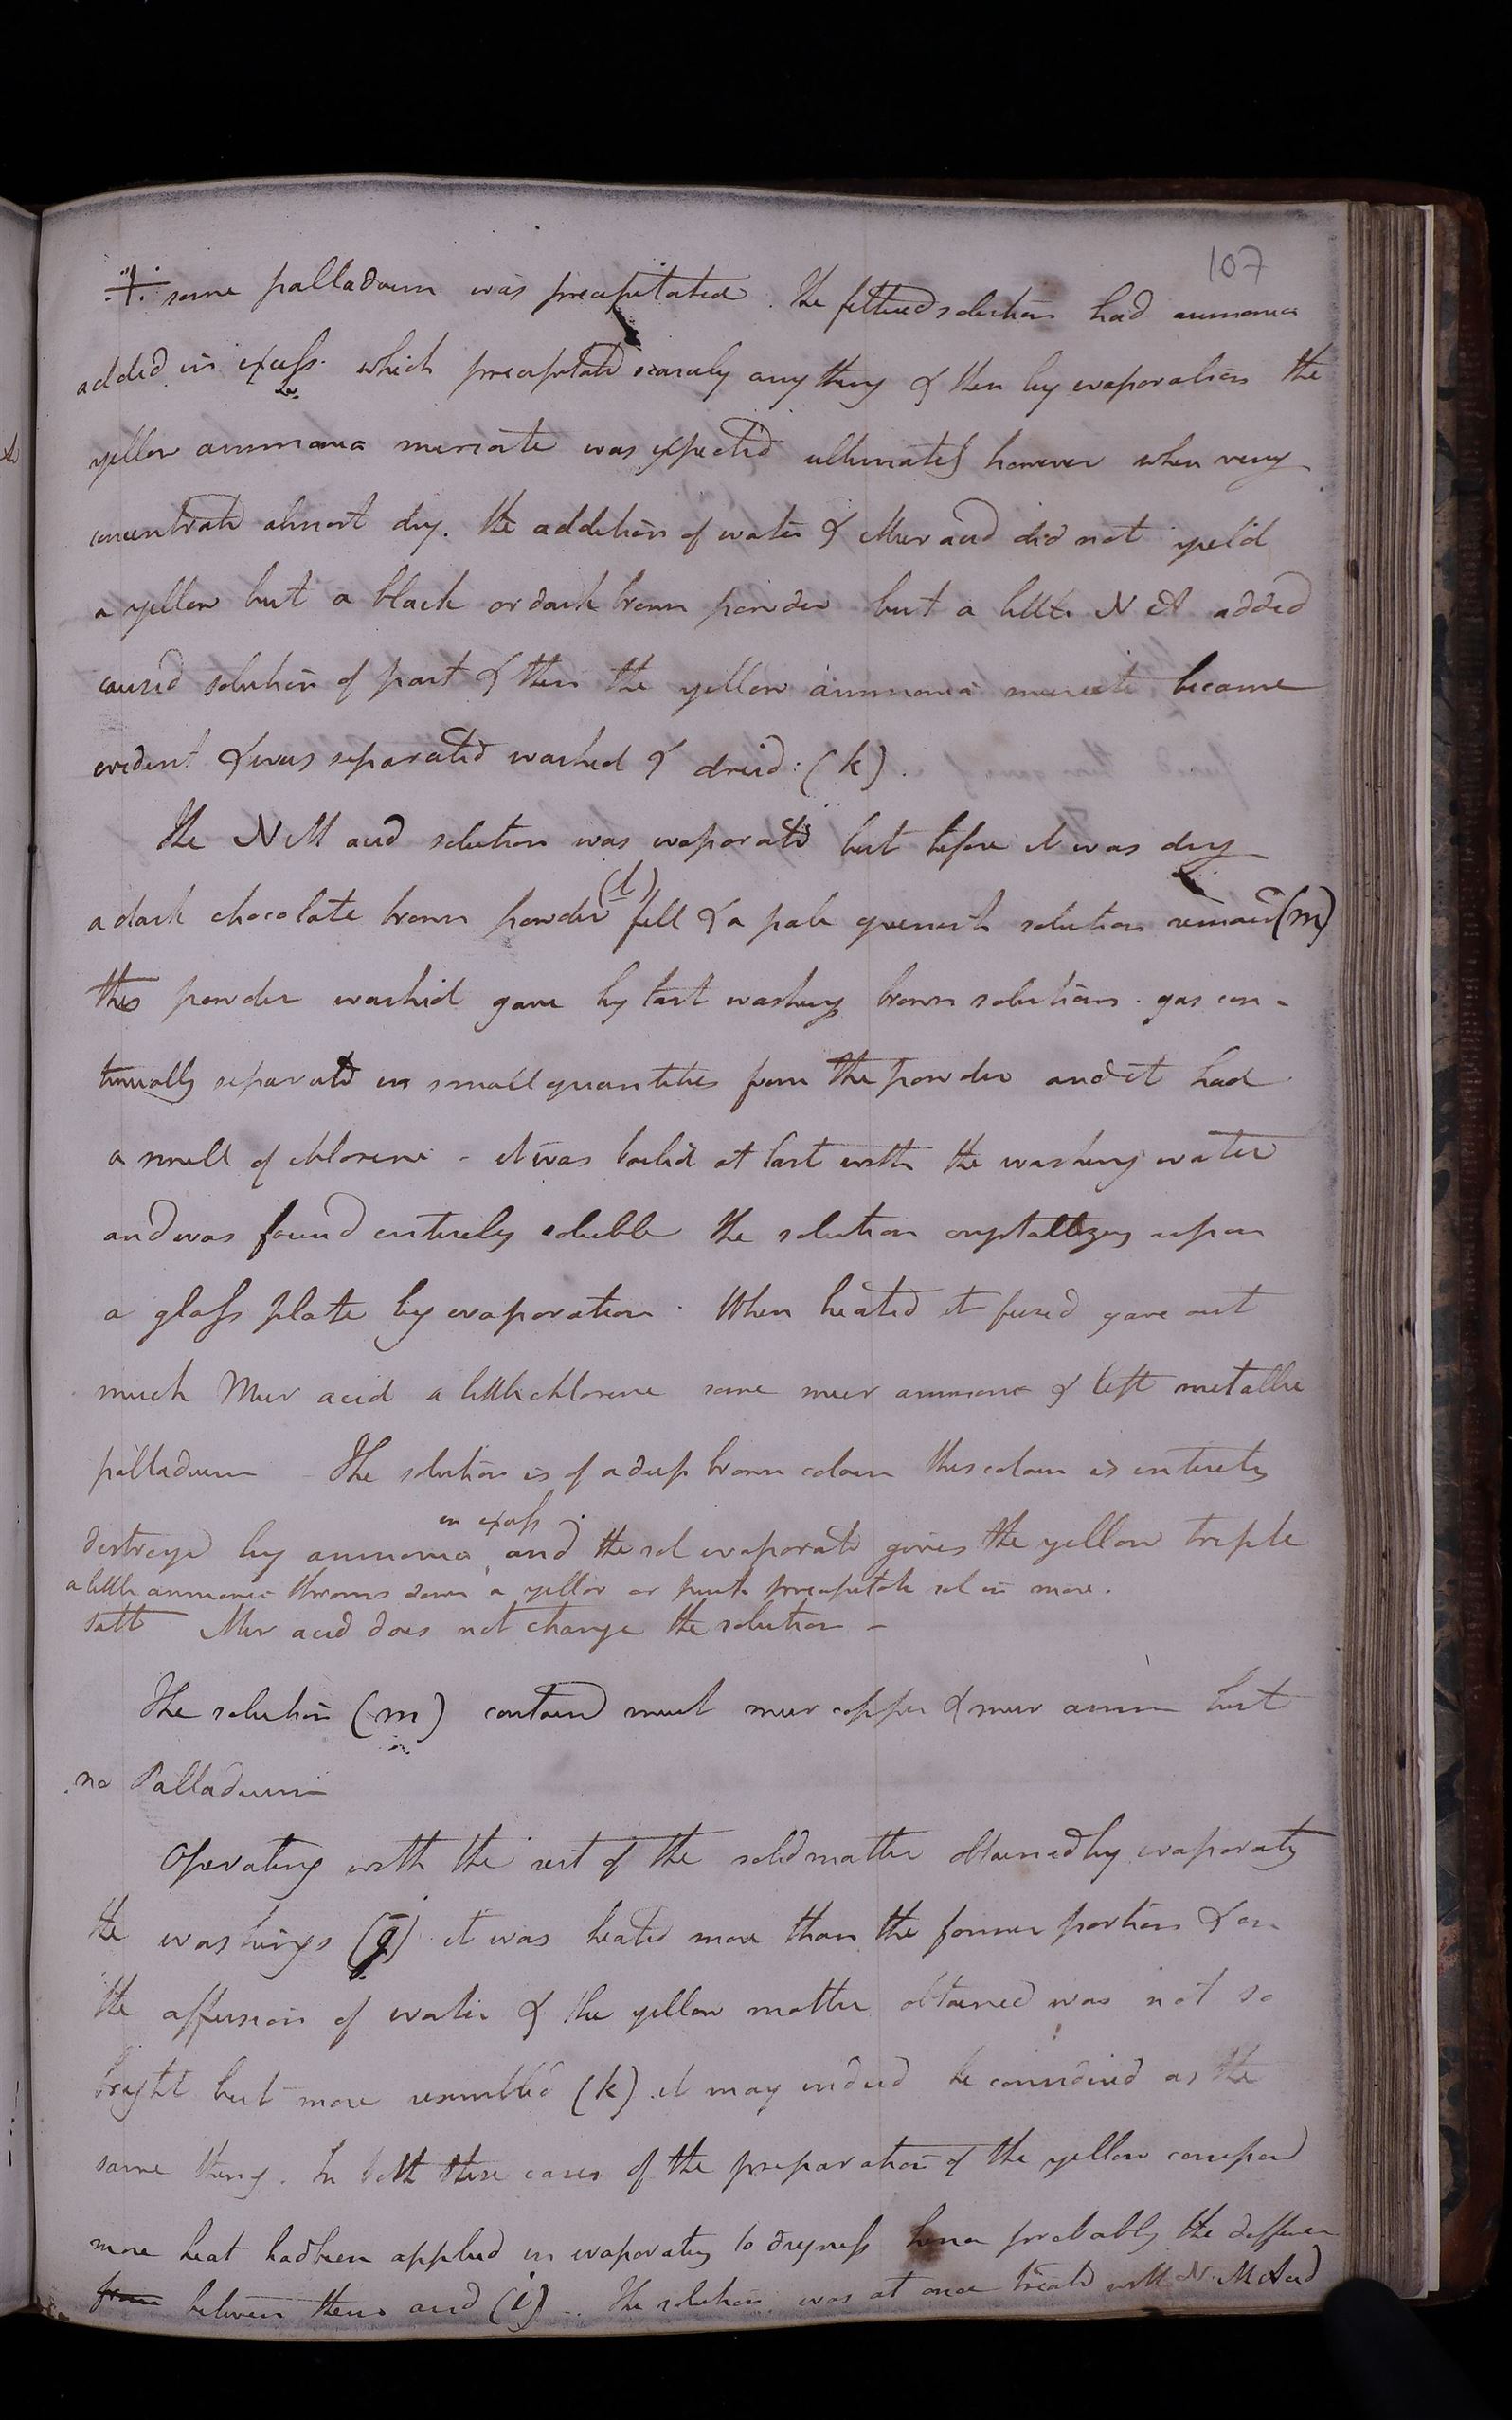 107
some palladium was precipitated. The filtered solution had ammonia
added in excess. which precipitated scarcely any thing & then by evaporation the
yellow ammonia muriate was expected ultimately however when very
concentrated almost dry. the addition of water & Mur acid did not yield
a yellow but a black or dark brown powder but a little N A added
caused solution of part & then the yellow ammonia muriate became
evident & was separated washed & dried: (k).
The N M acid solution was evaporated but before it was dry
a dark chocolate brown powder (l) fell & a pale greenish solution remaind (m)
this powder washed gave by last washing brown solutions. gas con-
tinually separated in small quantities from the powder and it had
a smell of chlorine - it was boiled at last with the washing water
and was found entirely soluble the solution crystallizing upon
a glass plate by evaporation. When heated it fused gave out
much Mur acid a little chlorine some mur ammonia & left metallic
palladium The solution is of a deep brown colour this colour is entirely
in excess
destroyed by ammonia and the sol evaporated gives the yellow triple
a little ammonia throws down a yellow or pink precipitate sol in more.
salt Mur acid does not change the solution -
The solution (m) contained much mur copper & mur amm but
no Palladium
Operating with the rest of the solid matter obtained by evaporating
the washings (g) it was heated more than the former portion & on
the affusion of water & the yellow matter obtained was not so
bright but more resembled (k) it may indeed be considered as the
same thing. In both these cases of the preparation of the yellow compound
more heat had been applied in evaporating to dryness hence probably the difference
from between them and (i) -. The solution was at once treated with N. M Acid